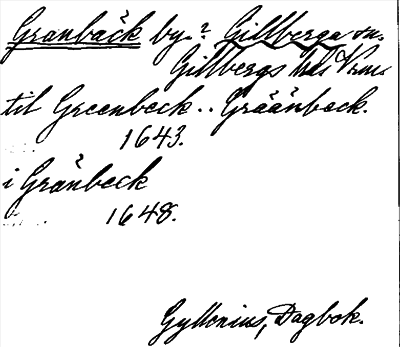 Granbäck by.? Gillberga sn.
Gillbergs hds Vrml.
til Greenbeck .. Gräänbeck.
1643.
i Gränbeck
1648.
Gyllenius, Dagbok.